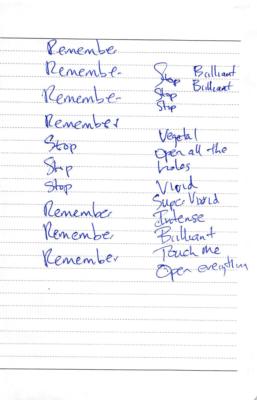 Remember
Remember Stop Brilliant
Remember Stop Brilliant
Stop
Remember
Stop Vegetal
Stop Open all the
holes
Stop Vivid
Super Vivid
Remember Intense
Remember Brilliant
Remember Touch me
Open everything